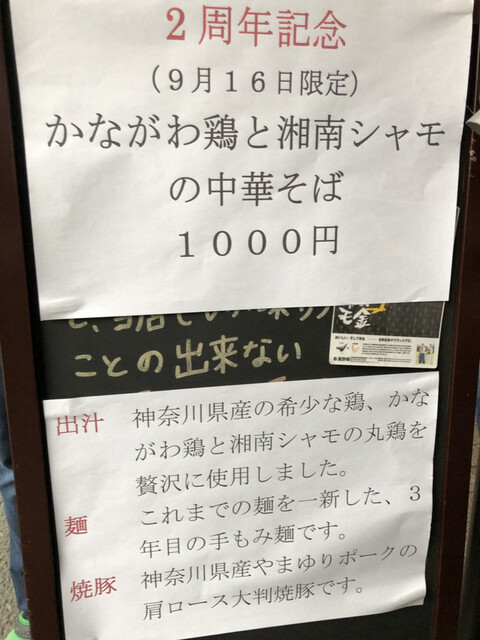 ２周年記念
（９月１６日限定）
かながわ鶏と湘南シャモ
の中華そば
１０００円
ことの出来ない
出汁 神奈川県産の希少な鶏、かな
がわ鶏と湘南シャモの丸鶏を
贅沢に使用しました。
麺 これまでの麺を一新した、３
年目の手もみ麺です。
焼豚 神奈川県産やまゆりポークの
肩ロース大判焼豚です。